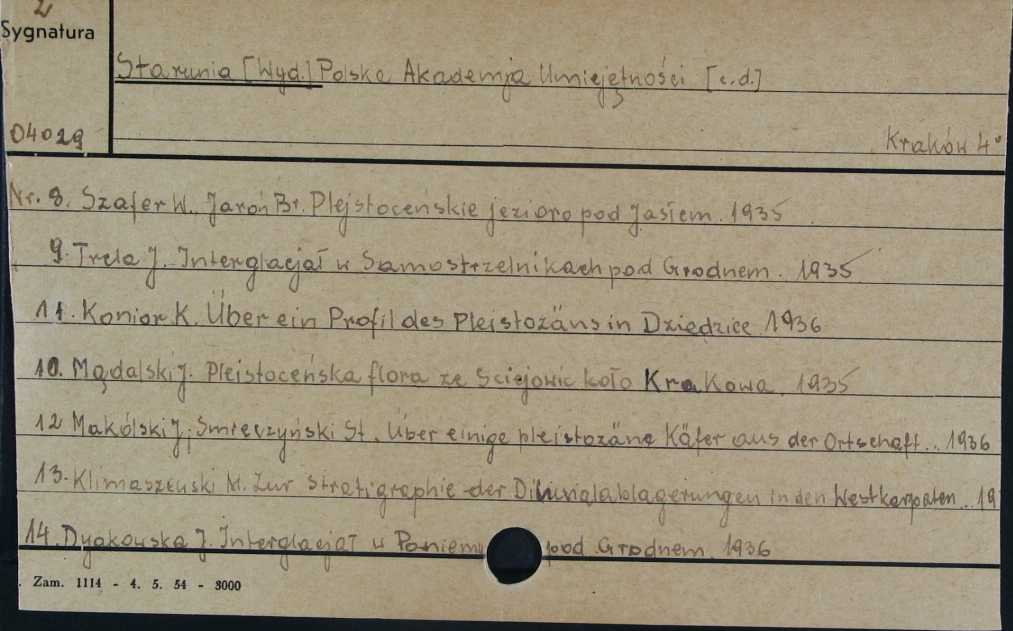 2
Sygnatura
Starunia [Wyd.] Polska Akademja Umiejętności [c.d.]
04029
Kraków 4°
Nr. 8. Szafer W., Jaroń Br. Plejstoceńskie jezioro pod Jasłem. 1935
9. Trela J. Interglacjał w Samostrzelnikach pod Grodnem. 1935
11. Konior K. Über ein Profil des Pleistozäns in Dziedzice 1936
10. Mądalski J. Pleistoceńska flora ze Ściejowic koło Krakowa, 1935
12 Makólski J., Smreczyński St. Über einige pleistozäne Käfer aus der Ortschaft .. 1936
13. Klimaszewski M. Zur Stratigraphie der Diluvialablagerungen in den Westkarpaten .. 19
14. Dyakowska J. Interglacjał w Poniemu pod Grodnem, 1936
Zam. 1114 - 4. 5. 54 - 3000